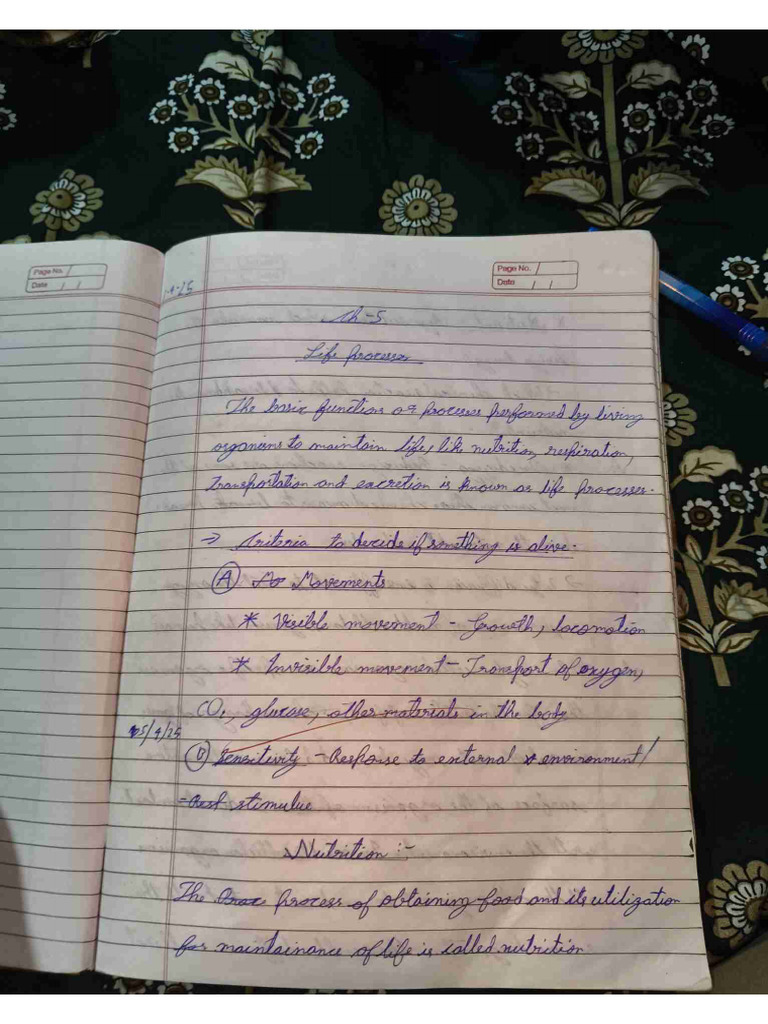 Page No.
Date / /
Page No.
Date / /
-4-25
Ch-5
Life processes
The basic functions or processes performed by living
organisms to maintain life, like nutrition, respiration,
Transportation and excretion is known as life processes.
→ Criteria to decide if something is alive.
(A) Movements
* Visible movement - Growth, locomotion
* Invisible movement - Transport of oxygen,
CO₂, glucose, other materials in the body
05/4/25
(B) Sensitivity - Response to external environment/
stimulue
Nutrition :-
The process of obtaining food and its utilization
for maintainance of life is called nutrition